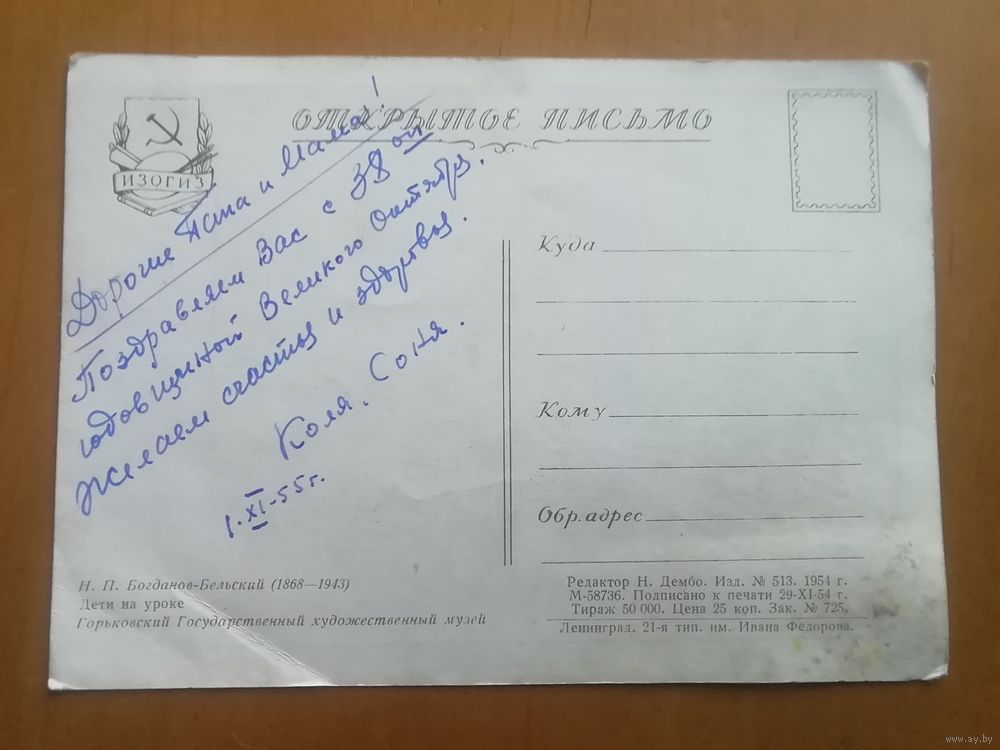 ИЗОГИЗ
ОТКРЫТОЕ ПИСЬМО
Дорогие Папа и Мама!
Поздравляем Вас с 38ой
годовщиной Великого Октября.
желаем счастья и здоровья.
Коля. Соня.
1.XI-55г.
Куда
Кому
Обр. адрес
Н. П. Богданов-Бельский (1868—1943)
Дети на уроке
Горьковский Государственный художественный музей
Редактор Н. Дембо. Изд. № 513. 1954 г.
М-58736. Подписано к печати 29-XI-54 г.
Тираж 50 000. Цена 25 коп. Зак. № 725.
Ленинград, 21-я тип. им. Ивана Федорова.
www.ay.by